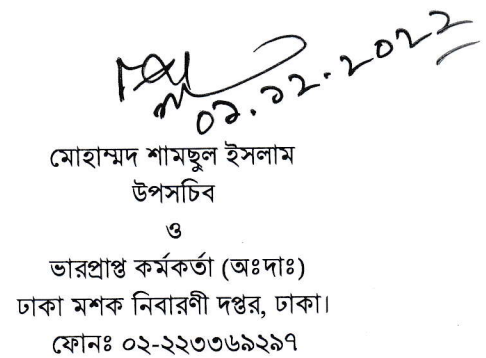 ০১.১২.২০২২
মোহাম্মদ শামছুল ইসলাম
উপসচিব
ও
ভারপ্রাপ্ত কর্মকর্তা (অঃদাঃ)
ঢাকা মশক নিবারণী দপ্তর, ঢাকা।
ফোনঃ ০২-২২৩৩৬৯২৯৭